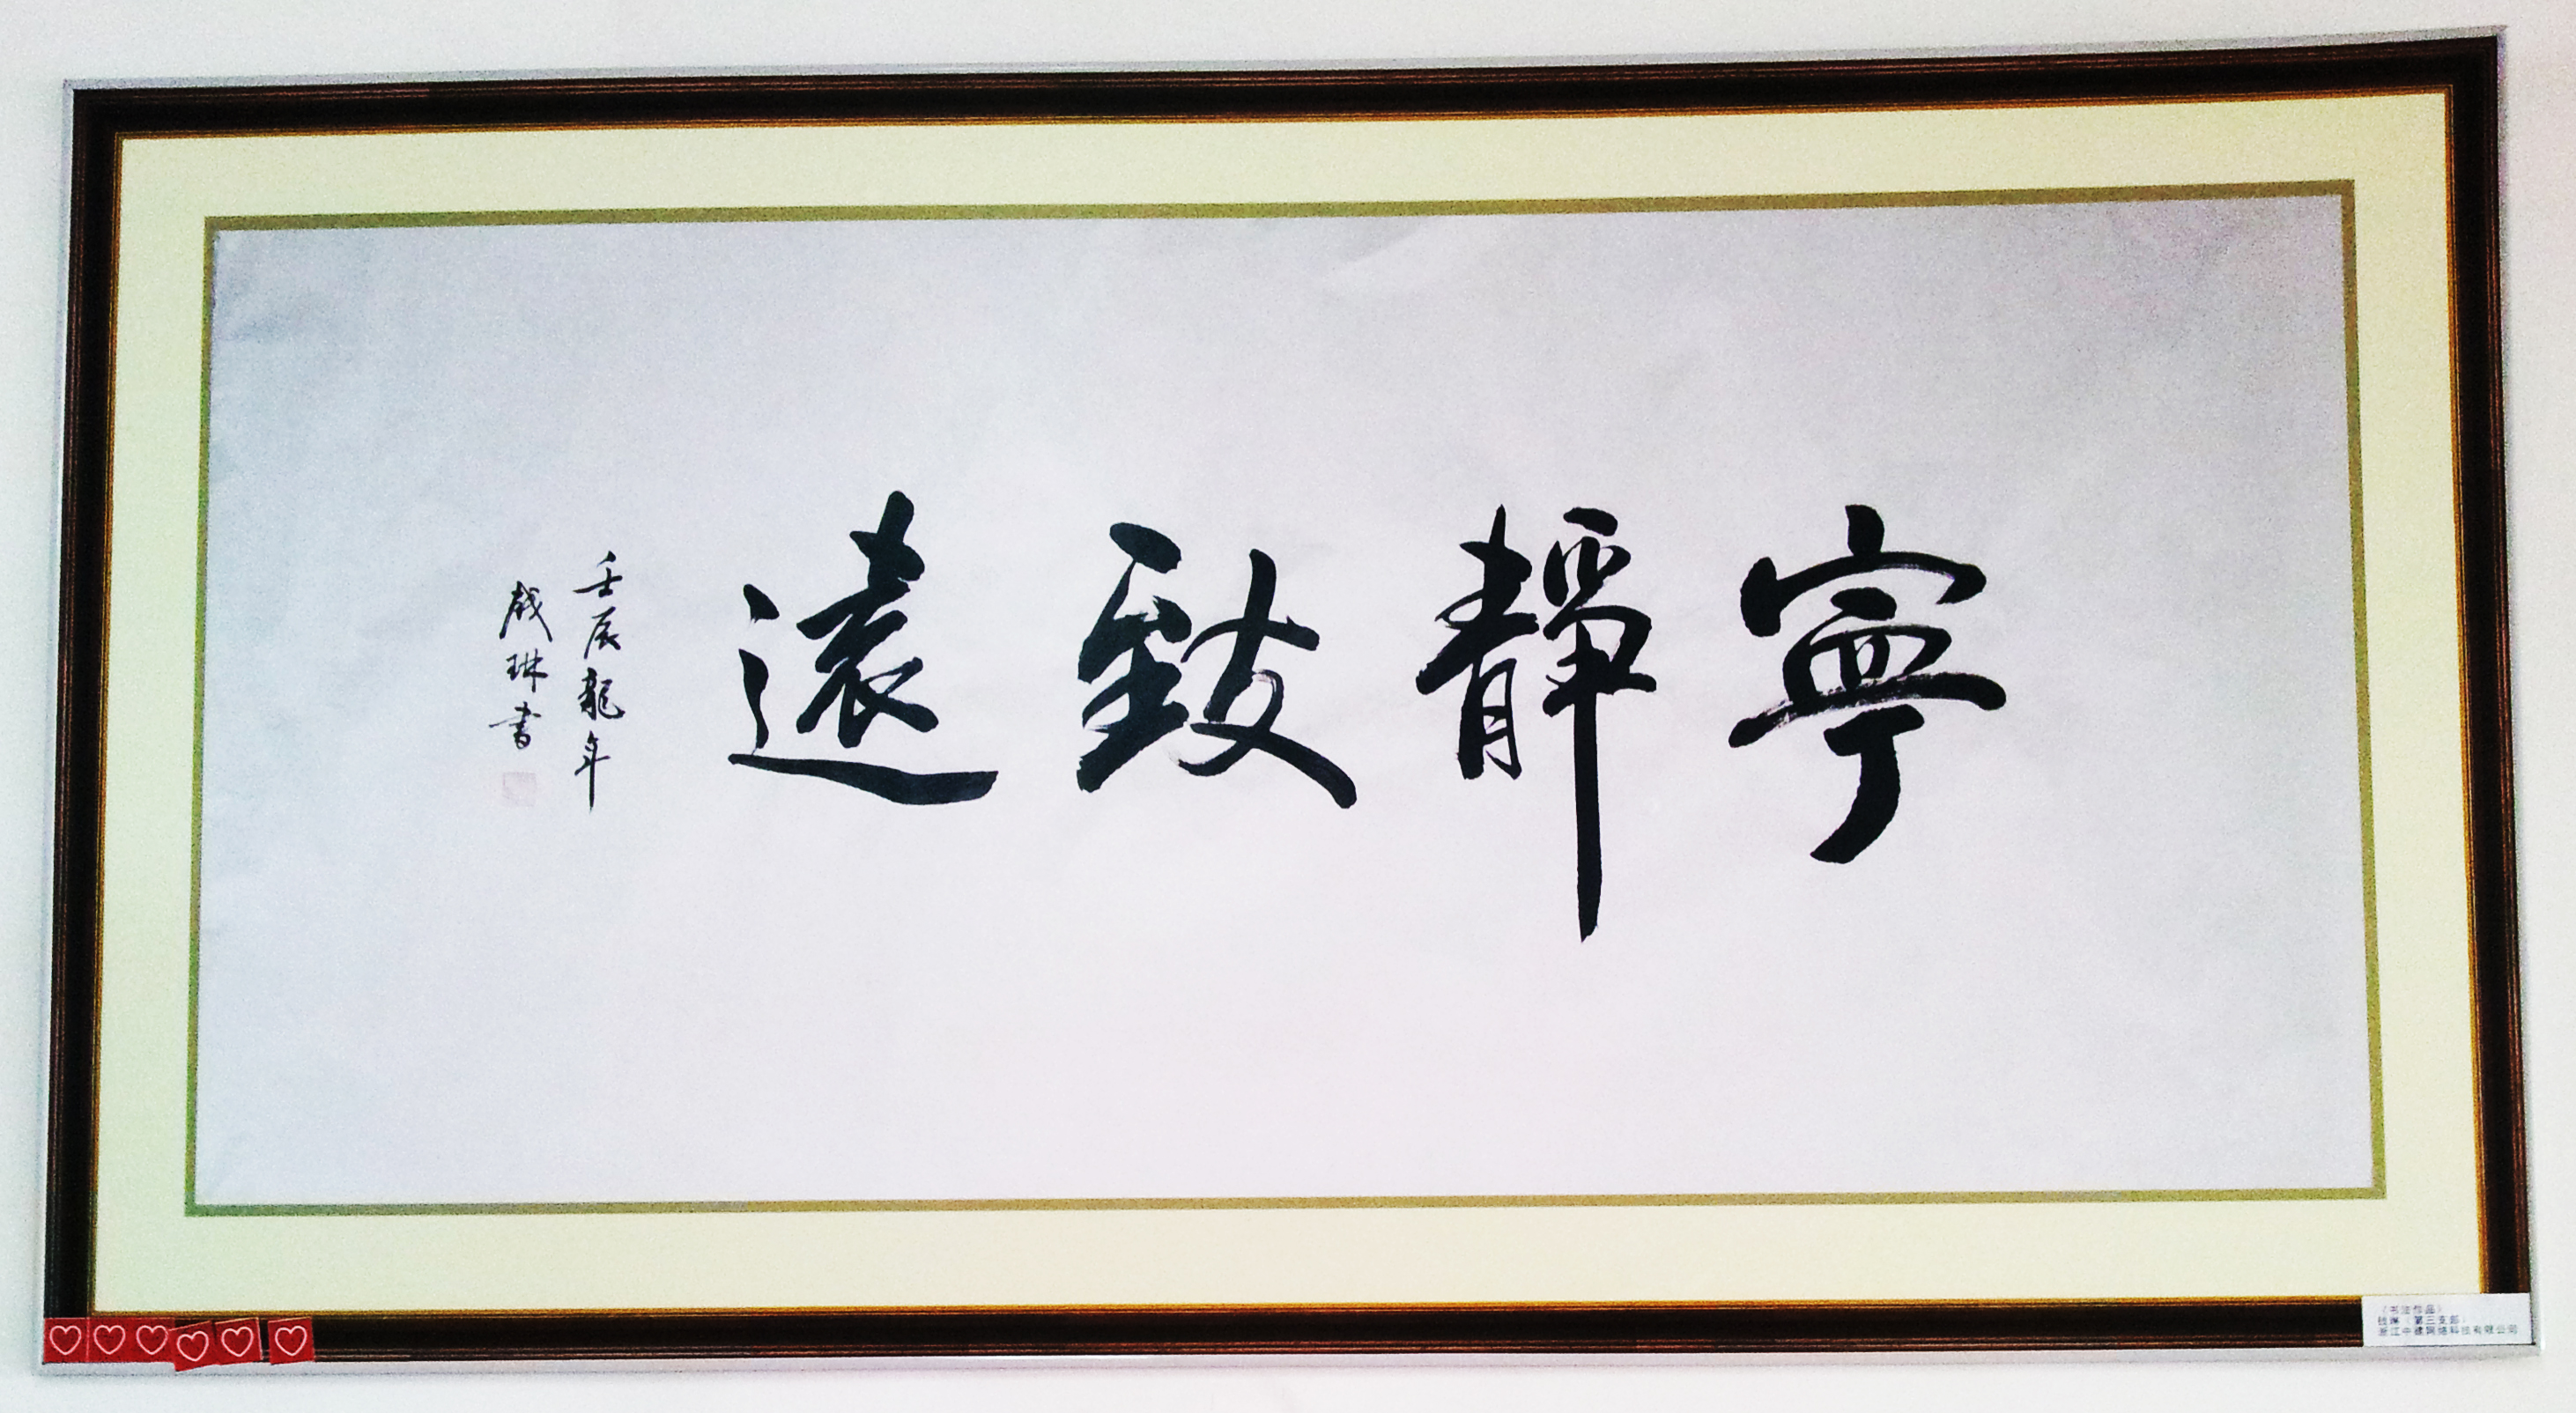 寧靜致遠
壬辰龍年
戗琳書
《书法作品》
钱琳（第三支部）
浙江中建网络科技有限公司